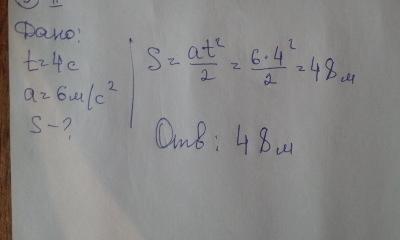 Дано:
t=4с
a=6м/с²
S-?
S = at²/2 = 6·4²/2 = 48м
Отв: 48м